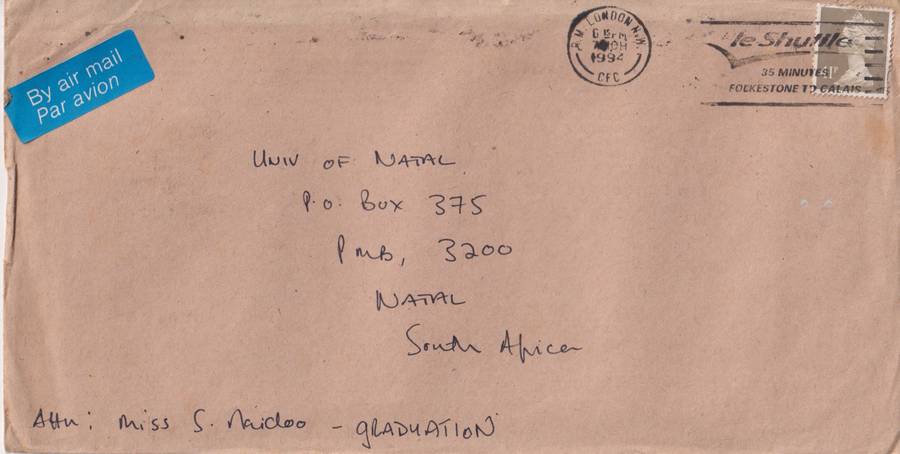 By air mail
Par avion
LONDON N.W.
1994
CFC
le Shuttle
35 MINUTES
FOLKESTONE TO CALAIS
UNIV OF NATAL
P.O. BOX 375
PMB, 3200
NATAL
South Africa
Attn: Miss S. Naidoo - GRADUATION